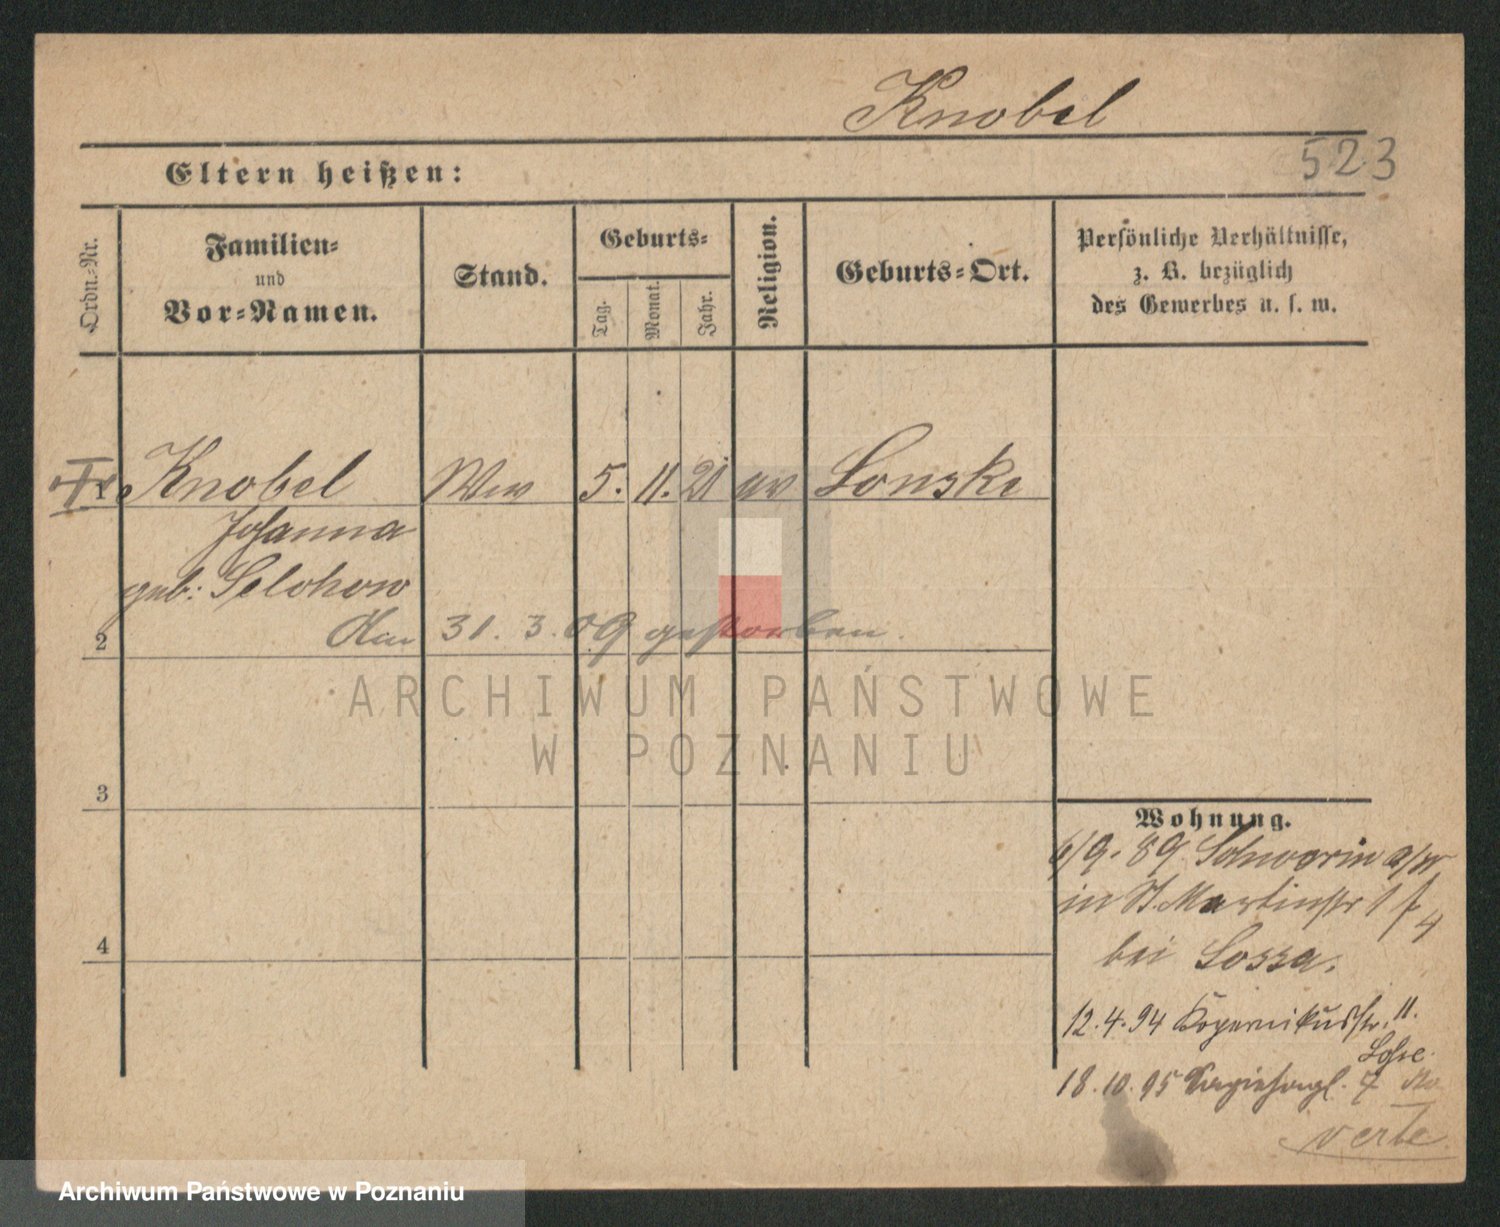 Knobel
523
Eltern heißen:
Ordn.-Nr.
Familien-
und
Vor-Namen.
Stand.
Geburts-
Tag.
Monat.
Jahr.
Religion.
Geburts-Ort.
Persönliche Verhältnisse,
z. B. bezüglich
des Gewerbes u. s. w.
1 Knobel Ww 5. 11. 21 ev Lonske
Johanna
geb: Selchow
2 Am 31. 3. 09 gestorben.
ARCHIWUM PAŃSTWOWE
W POZNANIU
3
Wohnung.
6/9. 89 Schwerin a/W
in St. Martinstr 1
4
bei Sossa.
12. 4. 94 Kopernikusstr. 11.
18. 10. 95
verte
Archiwum Państwowe w Poznaniu